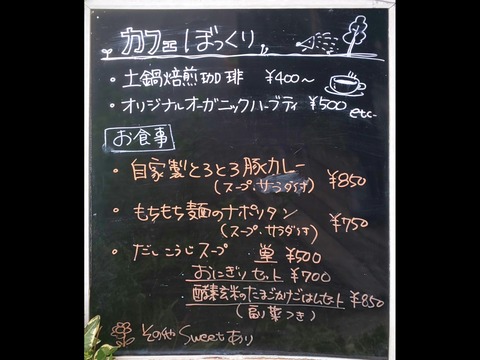 カフェ ぼっくり
・土鍋焙煎珈琲 ¥400〜
・オリジナルオーガニックハーブティ ¥500 etc-
お食事
・自家製とろとろ豚カレー ¥850
(スープ・サラダつき)
・もちもち麺のナポリタン ¥750
(スープ・サラダつき)
・だしこうじスープ 単 ¥500
おにぎりセット ¥700
酵素玄米のたまごかけごはんセット ¥850
(副菜つき)
その他 Sweetあり